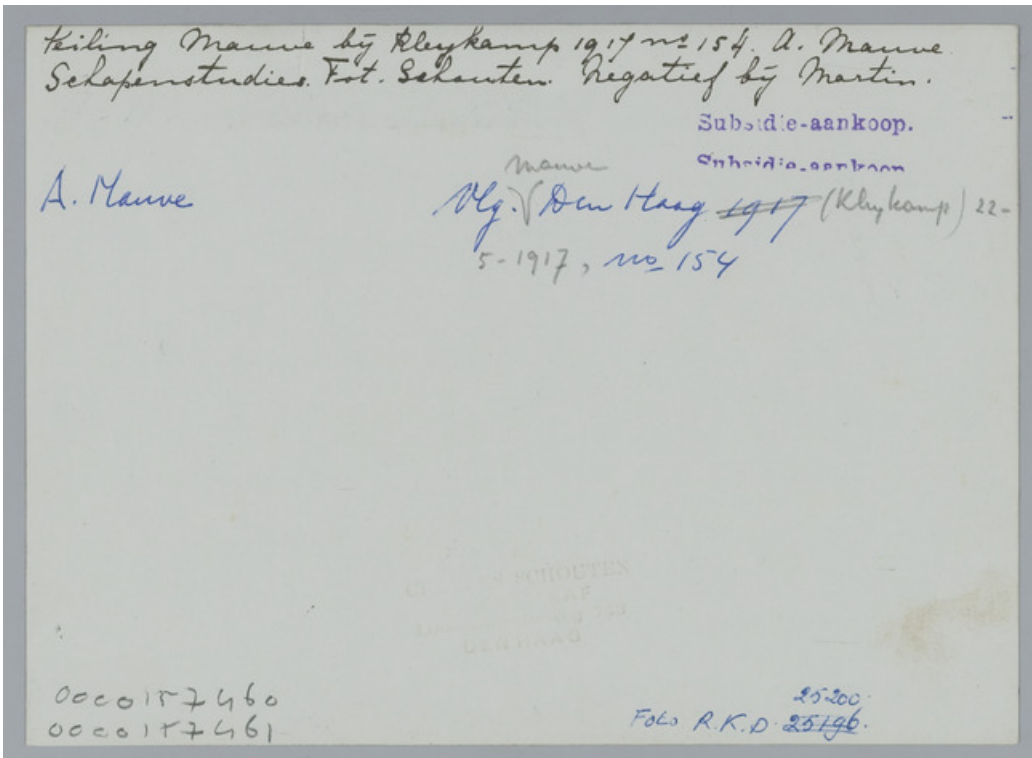 Veiling Mauve bij Kleykamp 1917 no 154. A. Mauve
Schapenstudies. Fot. Schouten. Negatief bij Martin.
Subsidie-aankoop.
Subsidie-aankoop
Mauve
A. Mauve
Vlg. Den Haag 1917 (Kleykamp) 22-
5-1917, no 154
SCHOUTEN
DEN HAAG
0000157460
0000157461
25200.
Foto R.K.D. 25196.